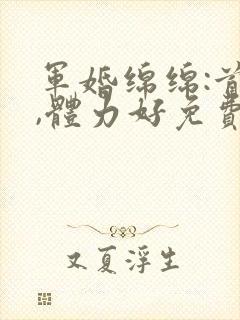 軍婚綿綿:首
,體力好免費
又夏浮生